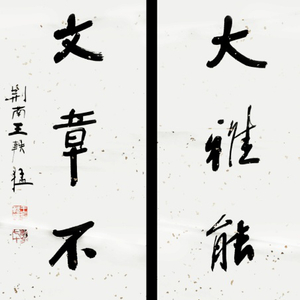 大雅能
文章不
荆南王